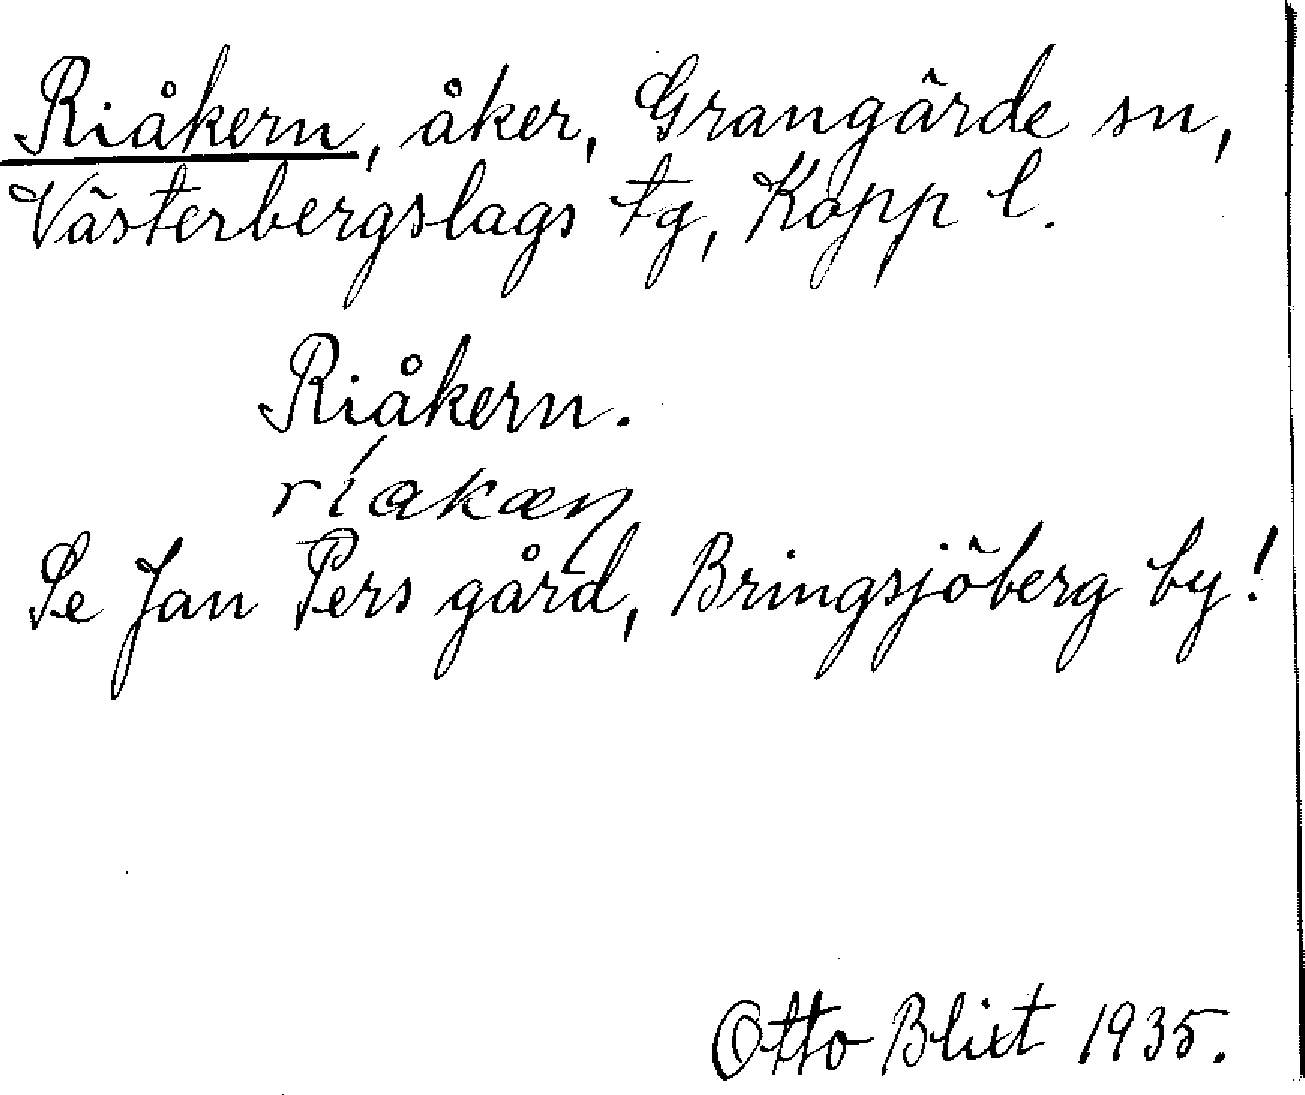 Riåkern, åker, Grangärde sn,
Västerbergslags tg, Kopp l.
Riåkern.
ríakæn
Se Jan Pers gård, Bringsjöberg by!
Otto Blixt 1935.